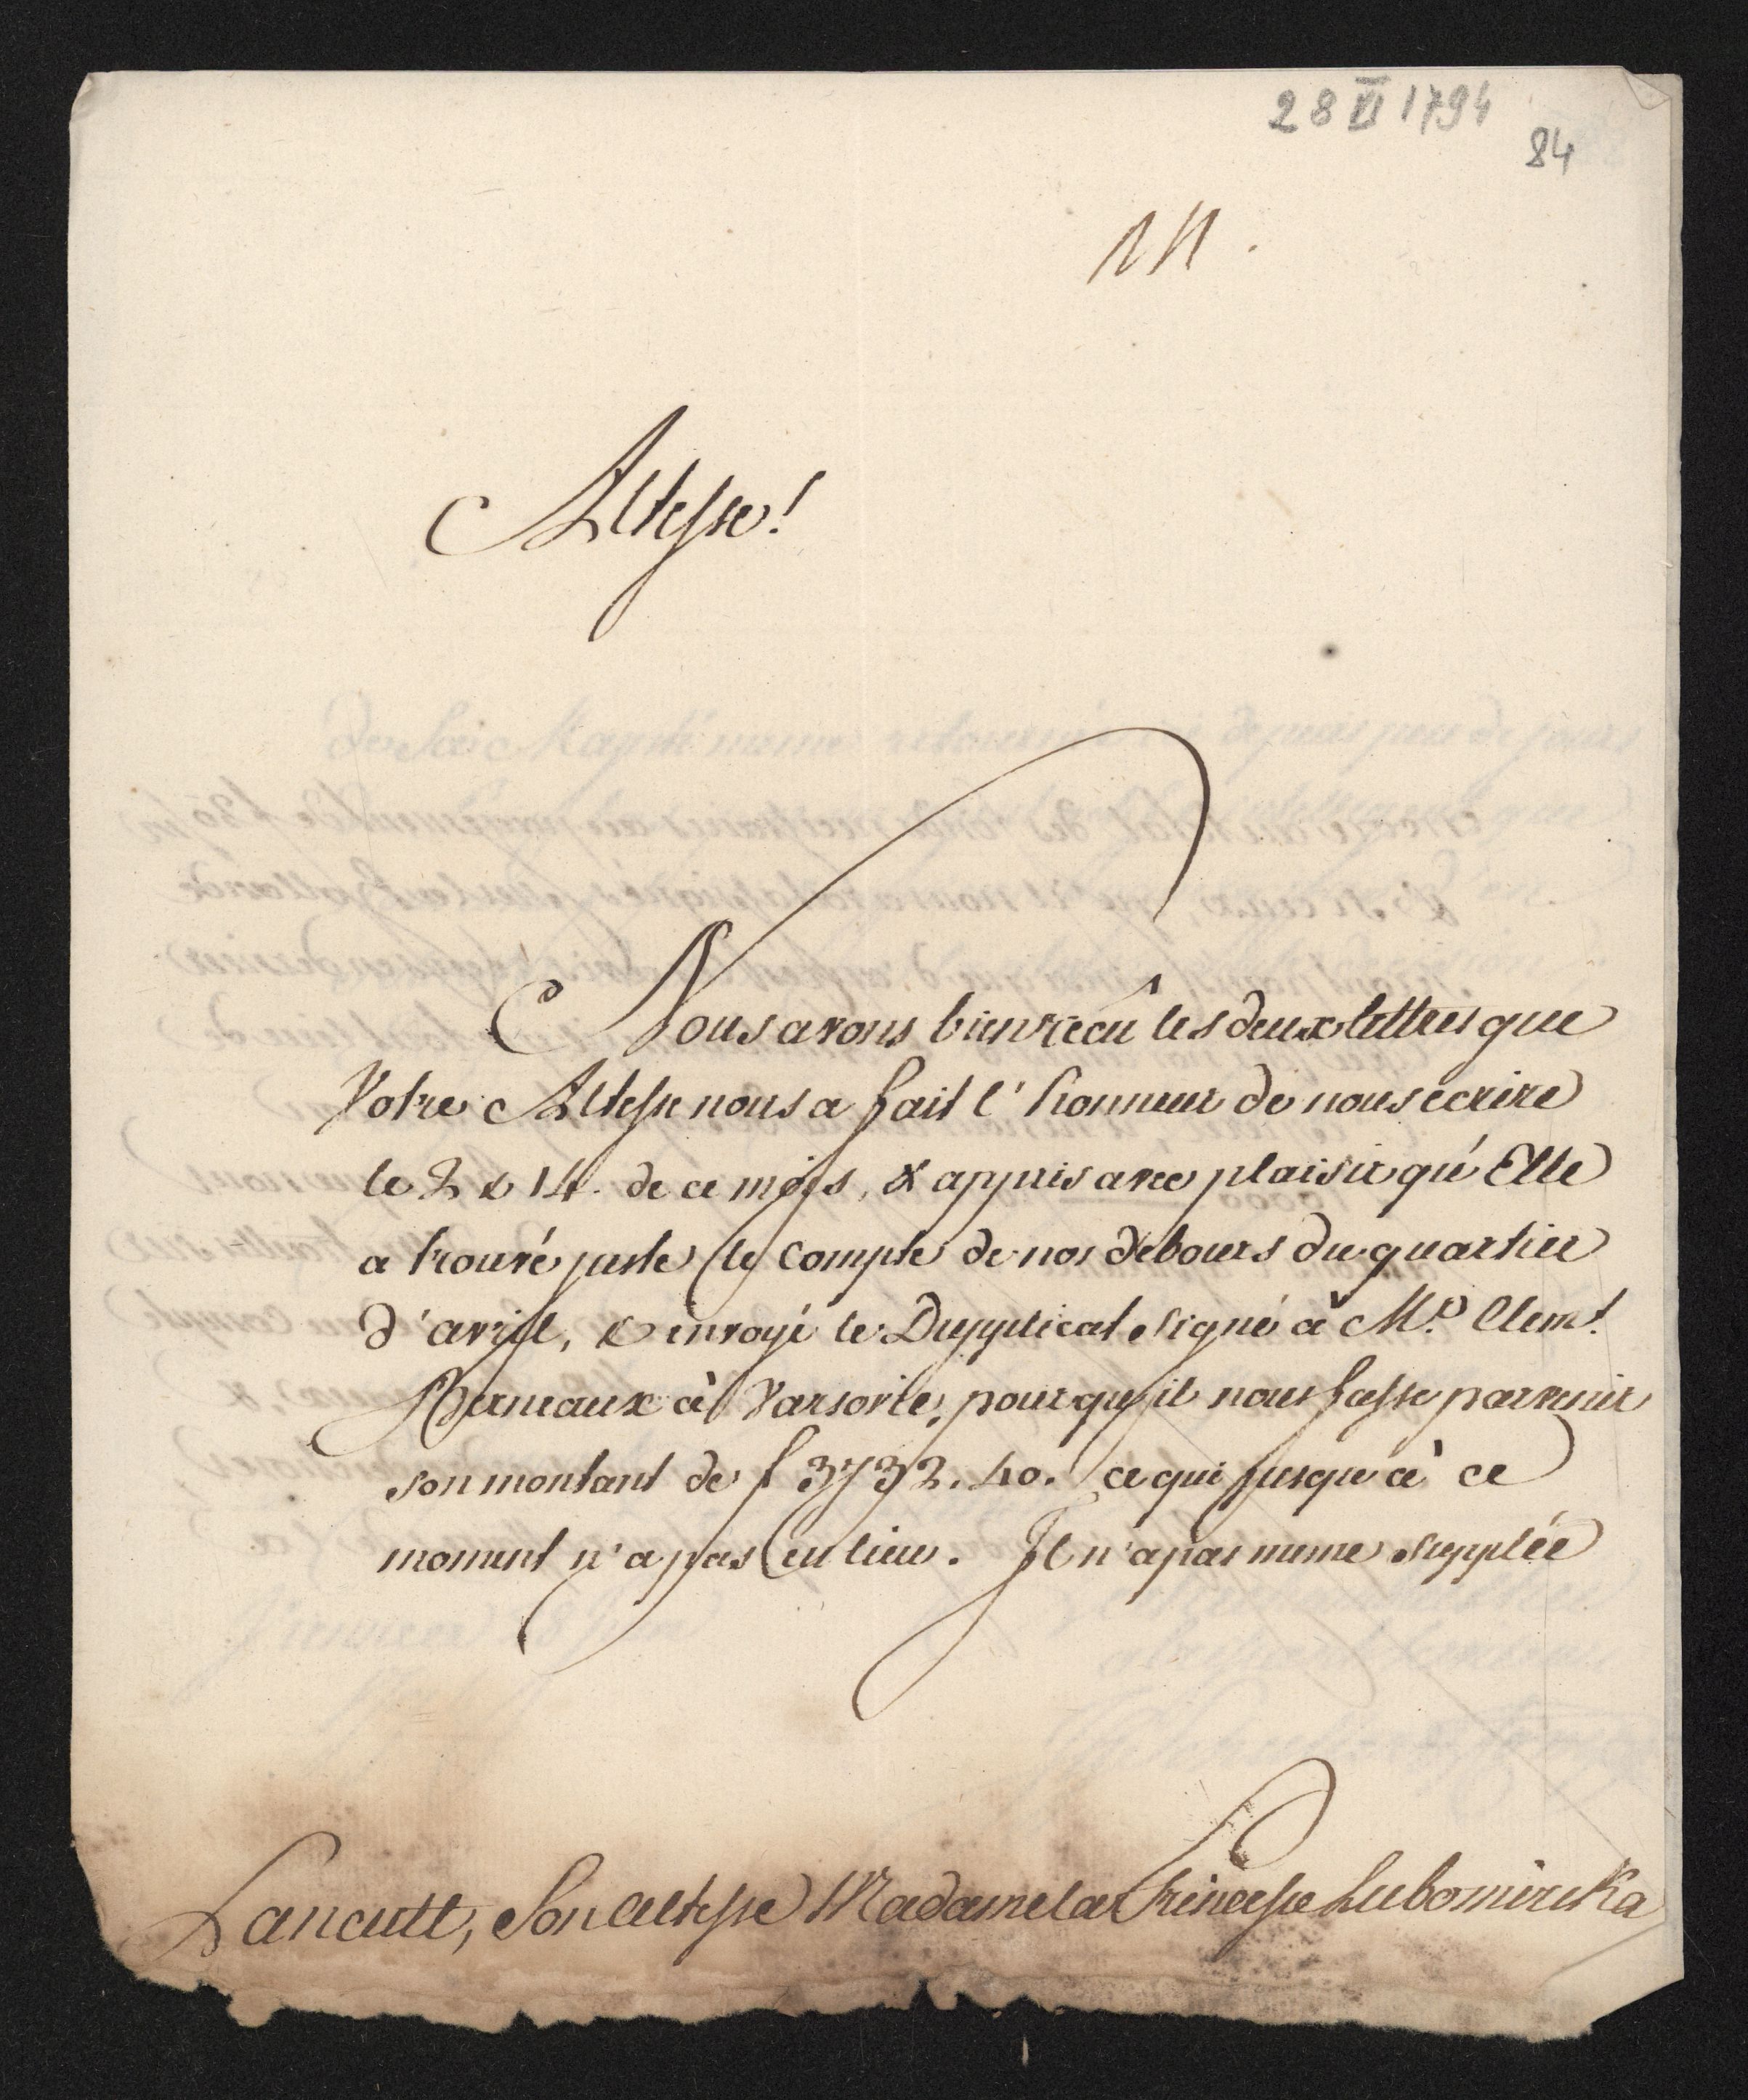 28 VI 1794
84
Altesse!
Nous avons bien reçû les deux lettres que
Votre Altesse nous a fait l'honneur de nous ecrire
le 2 & 14. de ce mois, & appris avec plaisir qu'Elle
a trouvé juste le Compte de nos débours du quartier
d'avril, & envoyé le Dupplicat signé à Mr. Clemt.
Berneaux à Varsovie, pour qu'il nous fasse parvenir
son montant de f 3732. 40. ce qui jusqu'à ce
moment n'a pas eu lieu. Il n'a pas meme supplée
Lancutt, Son Altesse Madame la Princesse Lubomirska